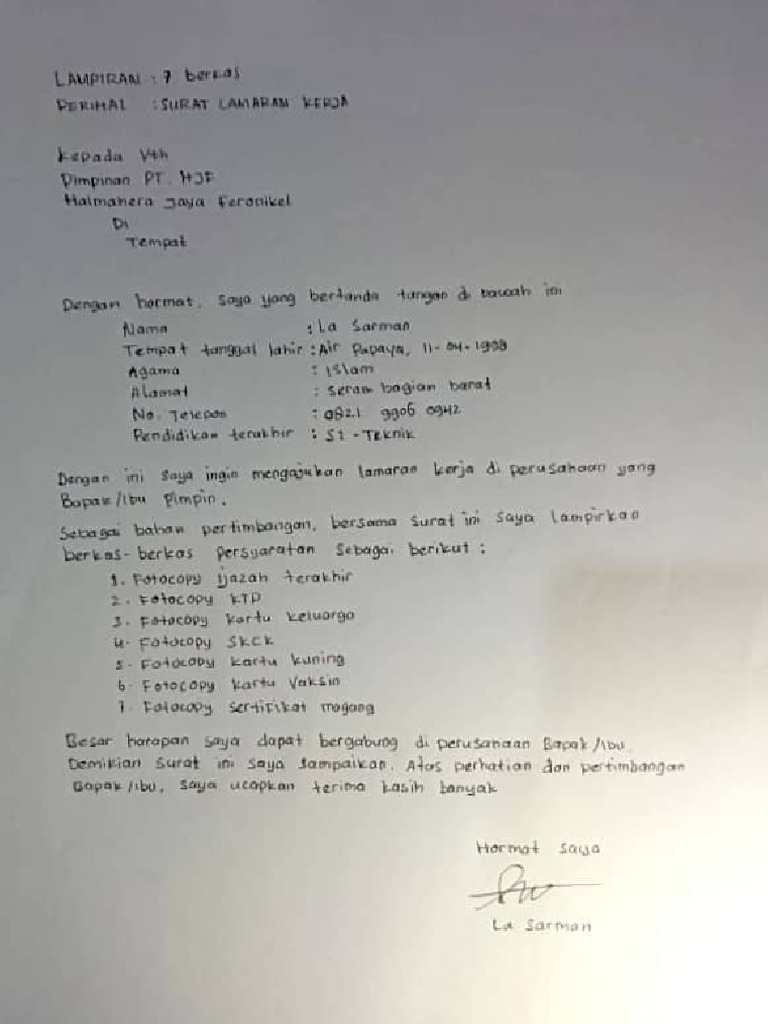 LAMPIRAN : 7 berkas
PERIHAL : SURAT LAMARAN KERJA
Kepada Yth
Pimpinan PT. HJF
Halmahera Jaya Feronikel
Di
Tempat
Dengan hormat, saya yang bertanda tangan di bawah ini
Nama : La Sarman
Tempat tanggal lahir : Air Papaya, 11-04-1998
Agama : Islam
Alamat : Seram bagian barat
No. Telepon : 0821 9906 0942
Pendidikan terakhir : S1 - Teknik
Dengan ini saya ingin mengajukan lamaran kerja di perusahaan yang
Bapak/Ibu Pimpin.
Sebagai bahan pertimbangan, bersama surat ini saya lampirkan
berkas-berkas persyaratan sebagai berikut :
1. Fotocopy ijazah terakhir
2. Fotocopy KTP
3. Fotocopy kartu keluarga
4. Fotocopy SKCK
5. Fotocopy kartu kuning
6. Fotocopy kartu Vaksin
7. Fotocopy sertifikat magang
Besar harapan saya dapat bergabung di perusahaan Bapak/Ibu.
Demikian surat ini saya sampaikan. Atas perhatian dan pertimbangan
Bapak/Ibu, saya ucapkan terima kasih banyak
Hormat saya
La Sarman